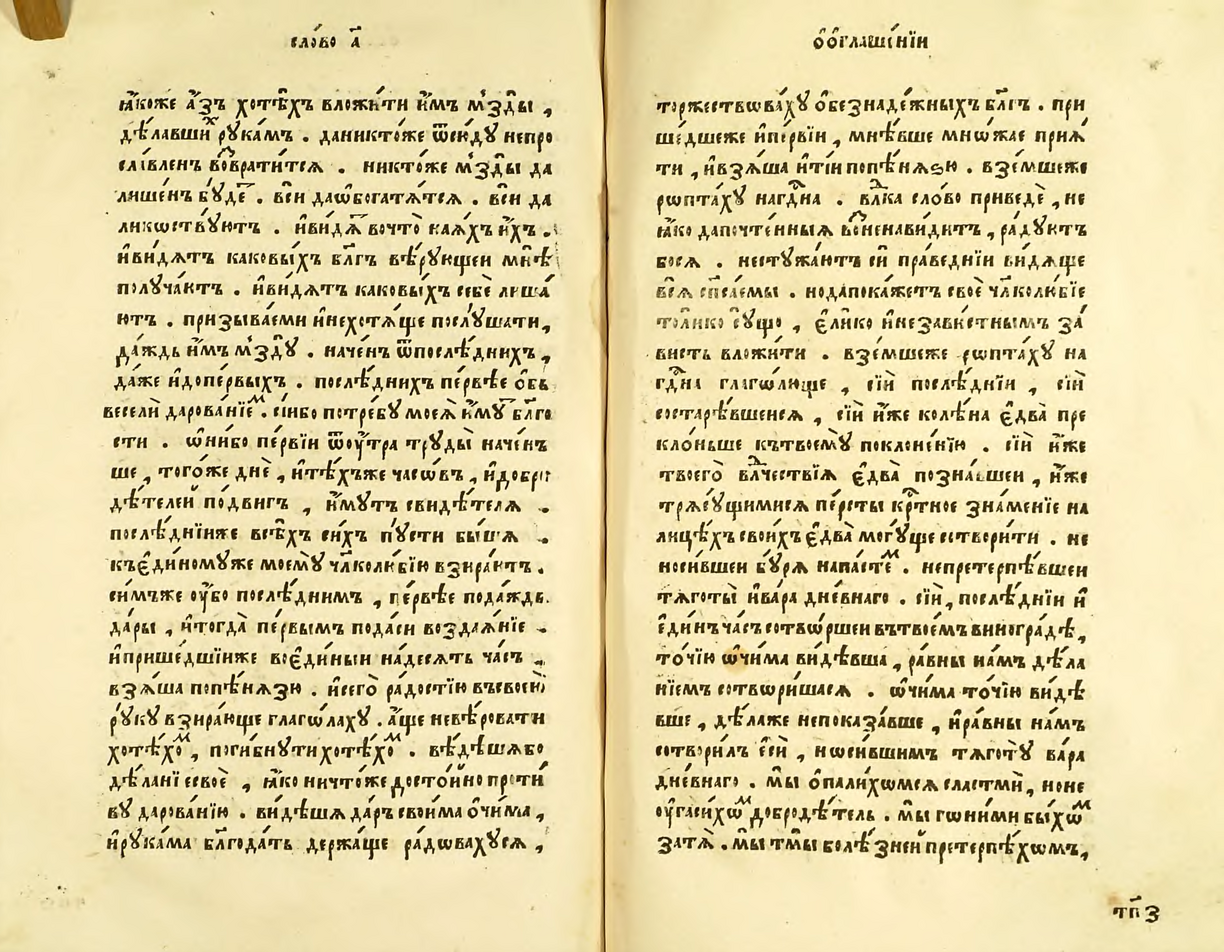 сло́во а҃
ꙗ҆́коже а҆́зъ хотѣ́хъ вложи́ти и҆̀мъ м҃зды̀ ,
дѣ́лавшиⷯ рꙋка́мъ . даникто́же ѿсю́дꙋ непро
сла́вленъ воⷥврати́тсѧ . никто́же м҃зды̀ да
лише́нъ бꙋ́деⷮ . всѝ даѡ҆богатѧ́тсѧ . всѝ да
ликѡствꙋ́ютъ . и҆ви́дѧⷮ вочто̀ ка́ѧхъ и҆́хъ .
и҆ви́дѧтъ каковы́хъ бл҃гъ вѣ́рꙋющеи мнѣ̀
получа́ютъ . и҆ви́дѧтъ каковы́хъ себѐ лиша́
ютъ . призыва́еми и҆нехотѧ́ще послꙋ́шати ,
да́ждь и҆̀мъ м҃здꙋ̀ . наче́нъ ѿпослѣ́днихъ ,
да́же и҆допе́рвыхъ . послѣ́днихъ пе́рвѣе ѻ҆бь
веселѝ дарова́нїеⷨ . сі́ибо потре́бꙋ моеѧ̀ и҆́мꙋⷮ бл҃го
сти . ѡ҆ни́бо пе́рвїи ѿоу҆́тра трꙋды̀ наче́нъ
ше , того́же днѐ , и҆тѣ́хъже часѡ́въ , и҆добры
дѣ́телей по́двигъ , и҆́мꙋтъ свидѣ́телѧ .
послѣ́днїиже всѣ́хъ си́хъ пꙋ́сти бы́шѧ .
къє҆ди́номꙋже моемꙋ̀ чл҃колю́бїю взира́ютъ .
си́мъже оу҆́бо послѣ́днимъ , пе́рвѣе пода́ждь
да́ры , и҆тогда̀ пе́рвымъ пода́си воздаѧ́нїе .
и҆прише́дшїиже воє҆ди́ныи на́десѧть ча́съ ,
взѧ́ша попѣ́нѧзю . и҆сего̀ ра́достїю въсвоею̀
рꙋ́кꙋ взира́юще глаго́лахꙋ . а҆́ще невѣ́ровати
хотѣ́хоⷨ , поги́бнꙋти хотѣ́хоⷨ . вѣ́дѣшѧбо
дѣ́ланїе своѐ , ꙗ҆́ко ничто́же досто́йно проти́
вꙋ дарова́нїю . ви́дѣшѧ да́ръ свои́ма ѻ҆чи́ма ,
и҆рꙋка́ма бл҃года́ть держа́ще ра́довахꙋсѧ ,
ѻ҆ѻ҆глаше́нїи
торжествѡва́хꙋ ѻ҆безнаде́жныхъ бл҃гъ . при
ше́дшеже и҆пе́рвїи , мнѣ́вше мно́жае прїѧ́
ти , и҆взѧ́ша и҆ті́и попѣ́нѧѕю . взе́мшеже
рѡпта́хꙋ наг҇дна . вⷧ҇ка сло́во приведѐ , не
ꙗ҆́ко дапочте́нныѧ воⷥненави́дитъ , ра́дꙋют
босѧ . несꙋжа́ютъ сѝ пра́веднїи ви́дѧще
всѧ̀ сп҃са́емы . нодапока́жетъ своѐ чл҃колю́бїе
толи́ко сꙋ́що , є҆ли́ко и҆незави́стнымъ за́
висть вложи́ти . взе́мшеже рѡпта́хꙋ на
гⷭ҇дна глаго́люще , сі́й послѣ́днїи , сі́й
состарѣ́вшеисѧ , сі́й и҆́же колѣ́на є҆два̀ пре
кло́ньше къ твоемꙋ̀ поклоне́нїю . сі́й и҆́же
твоего̀ влⷣчествїѧ є҆два̀ позна́вшеи , и҆́же
трѧсꙋ́щимисѧ пе́рсты крⷭ҇тное зна́менїе на
ли́цѣхъ свои́хъ є҆два̀ могꙋ́ще сотвори́ти . не
носи́вшеи бꙋ́рѧ напа́стеⷨ . непретерпѣ́вшеи
тѧготы̀ и҆ва́ра дне́внаго . сі́й , послѣ́днїи и҆
є҆ди́нъ ча́съ сотво́ршеи въ твое́мъ виногра́дѣ ,
то́чїю ѡ҆чи́ма ви́дѣвша , ра́вны на́мъ дѣ́ла
нїемъ сотвори́шасѧ . ѡ҆чи́ма то́чїю ви́дѣ
вше , дѣ́лаже непоказа́вше , и҆ра́вны на́мъ
сотвори́лъ є҆сѝ , носи́вшимъ тѧготꙋ̀ ва́ра
дне́внаго . мы̀ ѻ҆пали́хѡмсѧ сластмѝ , ноне
оу҆гаси́хѡⷨ добродѣ́тель . мы̀ гони́ми бы́хѡⷨ
затѧ̀ . мы̀ тмы̀ болѣ́зней претерпѣ́хѡмъ ,
тп҃з